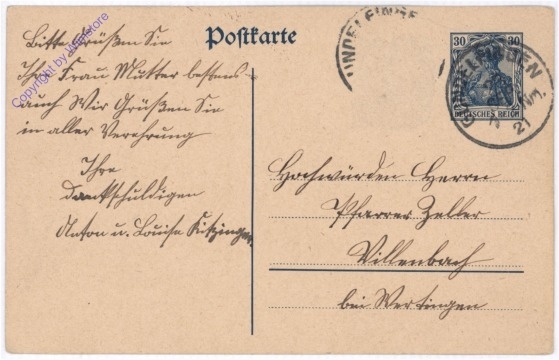 Postkarte
Bitte Grüßen Sie
Ihre Frau Mutter bestens
auch Wir Grüßen Sie
in aller Verehrung
Ihre
dankschuldigen
Anton u. Louise Kitzinger
Copyright by
30 30
DEUTSCHES REICH
GUNDELFINGEN
21
Hochwürden Herrn
Pfarrer Zeller
Villenbach
bei Wertingen